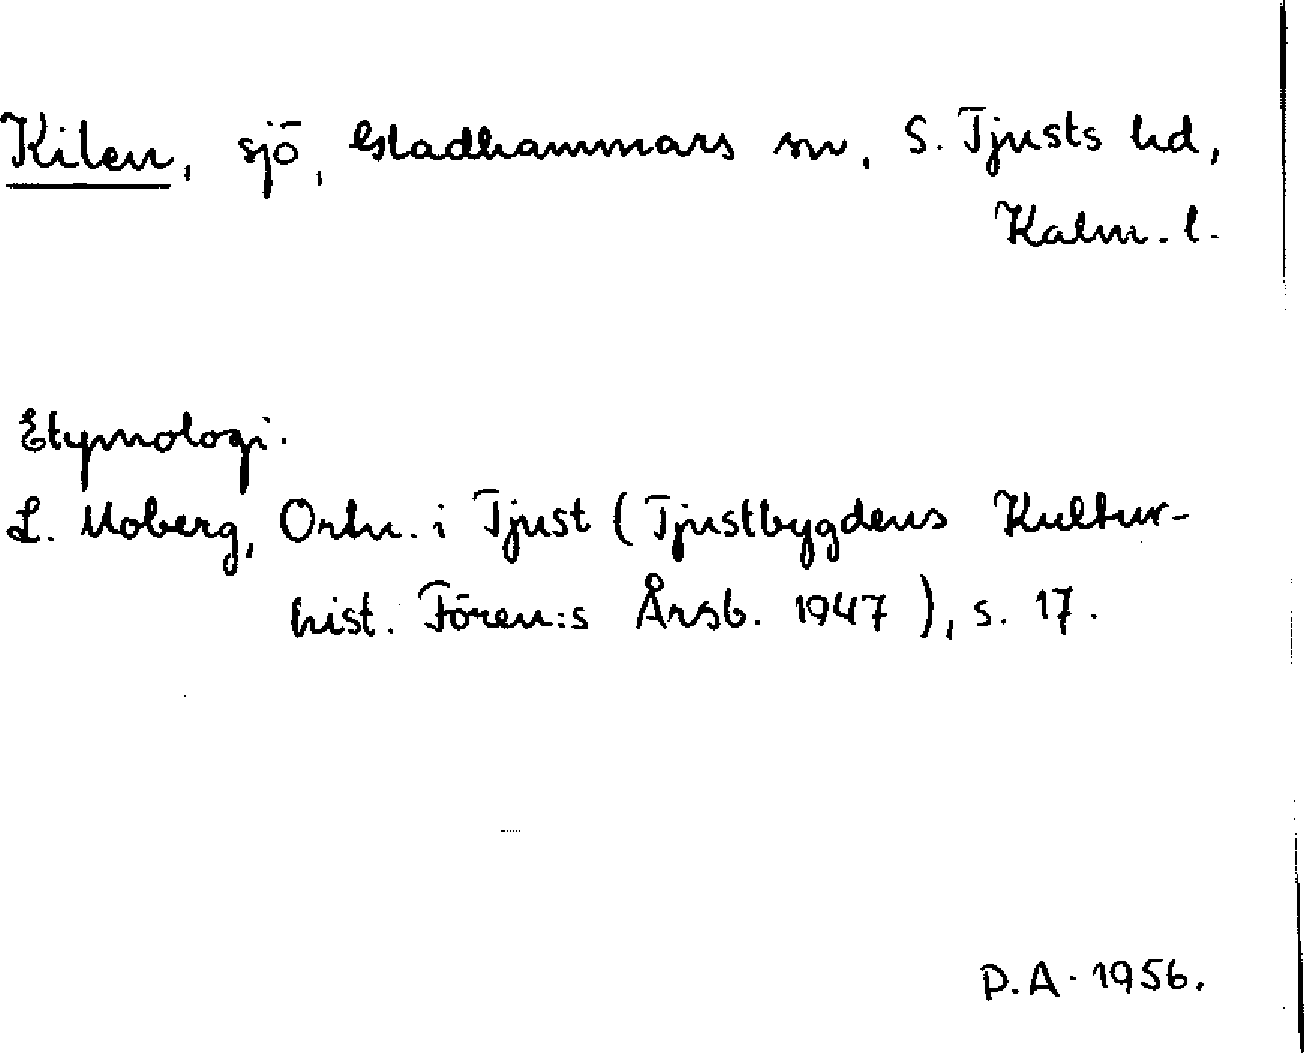 Kilen, sjö, Gladhammars sn, S. Tjusts hd,
Kalm. l.
Etymologi.
L. Moberg, Ortn. i Tjust (Tjustbygdens Kultur-
hist. Fören:s Årsb. 1947), s. 17.
P.A. 1956.